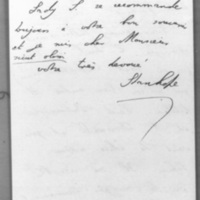 Lady S. se recommande
toujours à votre bon souvenir
et je suis cher Monsieur
votre très devoué
Stanhope